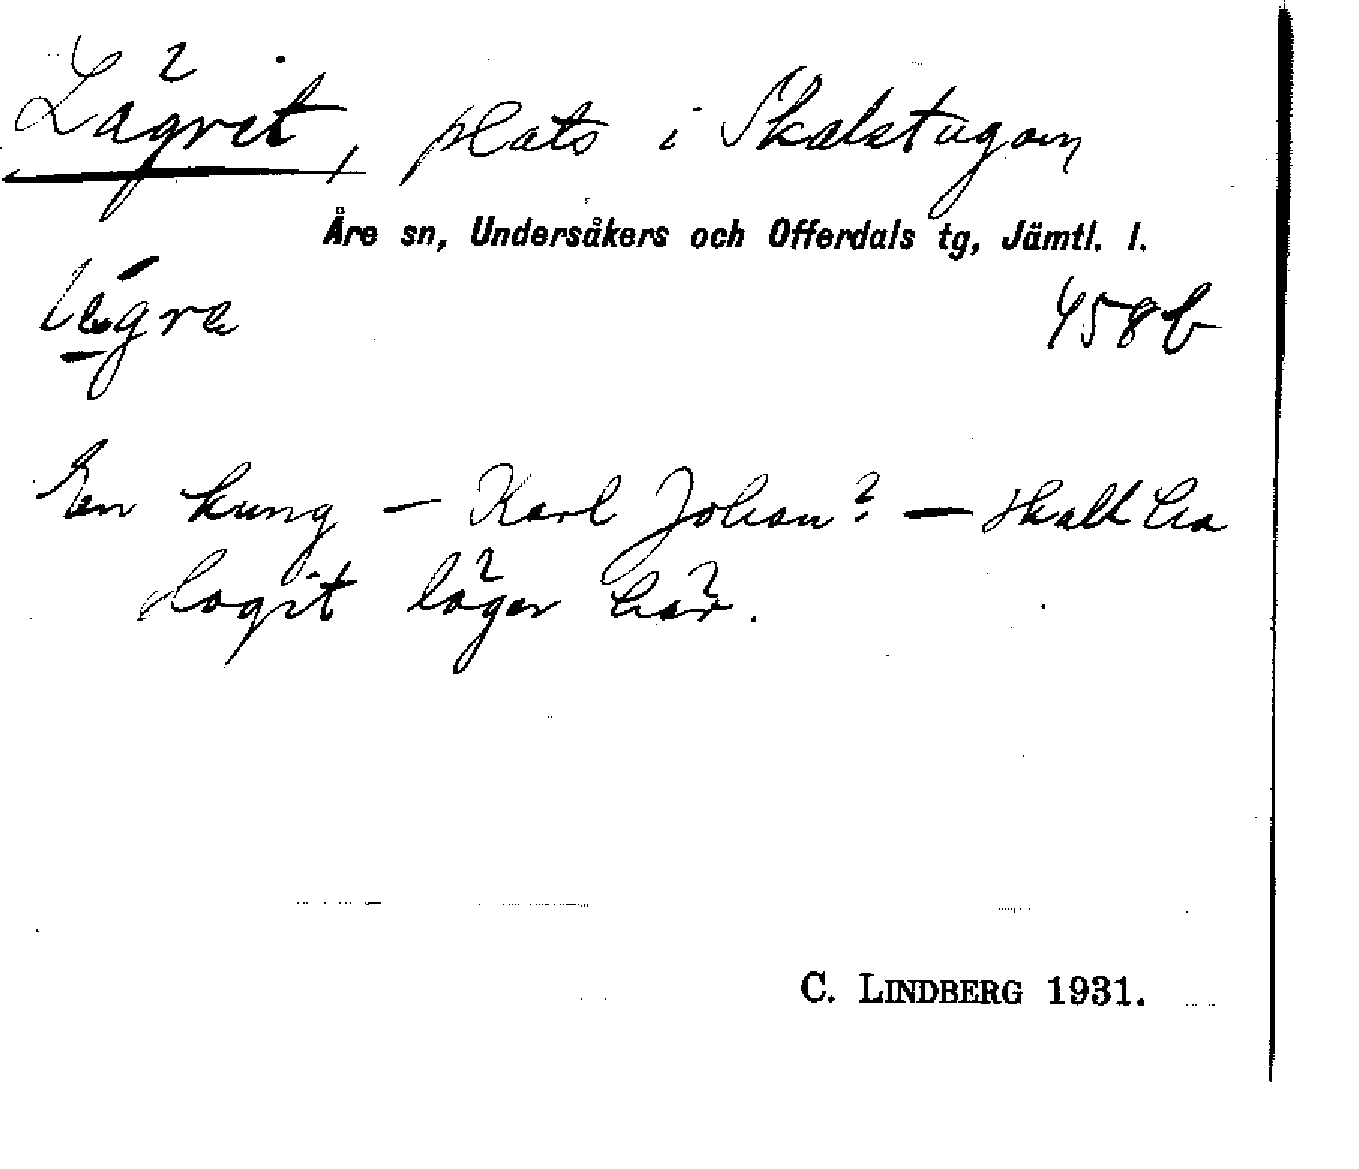 Lägret, plats i Skalstugan
Åre sn, Undersåkers och Offerdals tg, Jämtl. l.
lägra 458b
En kung – Karl Johan? – skall ha
slagit läger här.
C. LINDBERG 1931.